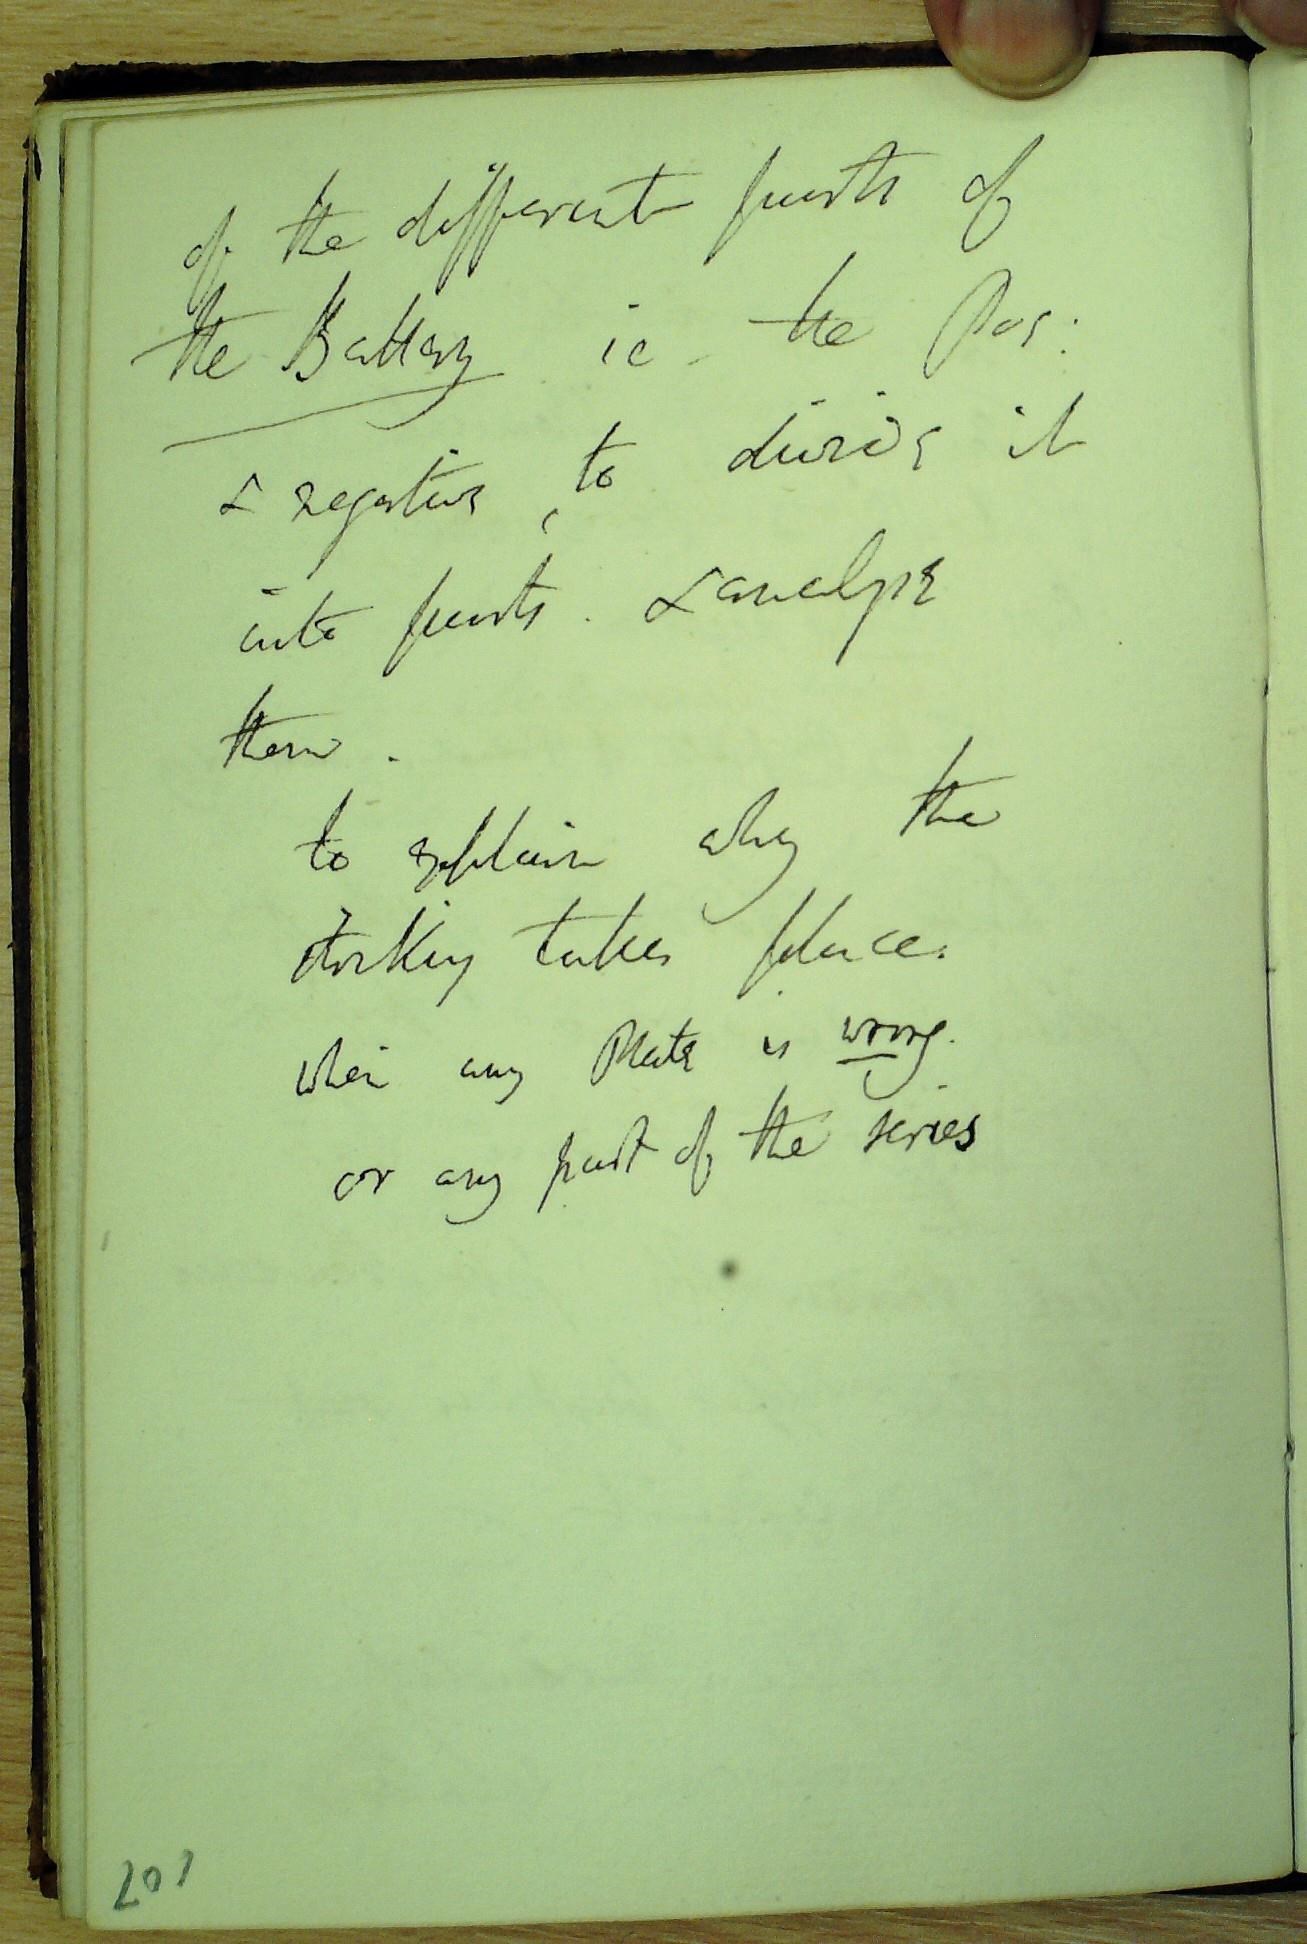 107
of the different parts of
the Battery ie the Pos:
& negative, to divide it
into parts. & analyze
them.
to explain why the
striking takes place
when any Plate is wrong.
or any part of the series